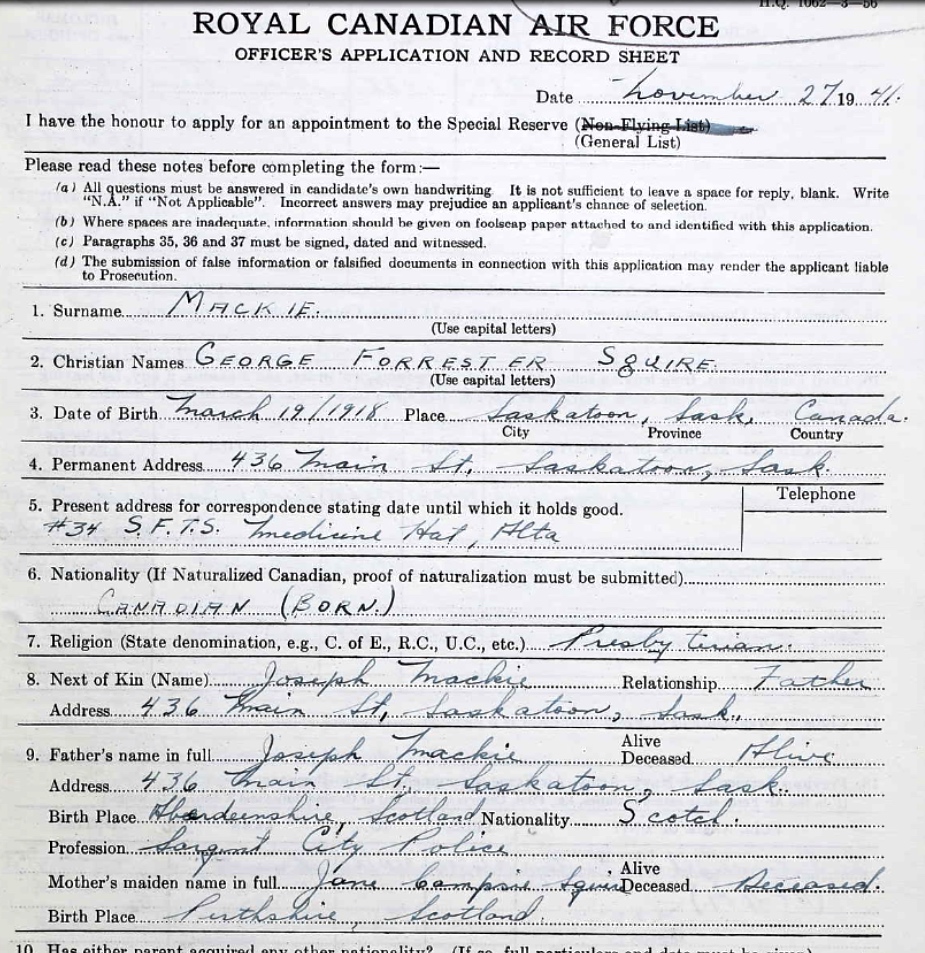 H.Q. 1062—3—56
ROYAL CANADIAN AIR FORCE
OFFICER'S APPLICATION AND RECORD SHEET
Date November 27 19 41.
I have the honour to apply for an appointment to the Special Reserve (Non-Flying List)
(General List)
Please read these notes before completing the form:—
(a) All questions must be answered in candidate's own handwriting. It is not sufficient to leave a space for reply, blank. Write
"N.A." if "Not Applicable". Incorrect answers may prejudice an applicant's chance of selection.
(b) Where spaces are inadequate, information should be given on foolscap paper attached to and identified with this application.
(c) Paragraphs 35, 36 and 37 must be signed, dated and witnessed.
(d) The submission of false information or falsified documents in connection with this application may render the applicant liable
to Prosecution.
1. Surname MACKIE.
(Use capital letters)
2. Christian Names GEORGE FORRESTER SQUIRE.
(Use capital letters)
3. Date of Birth March 19/1918 Place Saskatoon, Sask, Canada.
City Province Country
4. Permanent Address 436 Main St, Saskatoon, Sask.
Telephone
5. Present address for correspondence stating date until which it holds good.
#34 S.F.T.S. Medicine Hat, Alta
6. Nationality (If Naturalized Canadian, proof of naturalization must be submitted)
CANADIAN (BORN.)
7. Religion (State denomination, e.g., C. of E., R.C., U.C., etc.) Presbyterian.
8. Next of Kin (Name) Joseph Mackie Relationship Father
Address 436 Main St, Saskatoon, Sask.
9. Father's name in full Joseph Mackie Alive Deceased Alive
Address 436 Main St, Saskatoon, Sask.
Birth Place Aberdeenshire, Scotland Nationality Scotch.
Profession Sargent City Police
Mother's maiden name in full Jane Campsie Squire Alive Deceased Deceased.
Birth Place Perthshire, Scotland.
10. Has either parent acquired any other nationality? (If so, full particulars and date must be given)